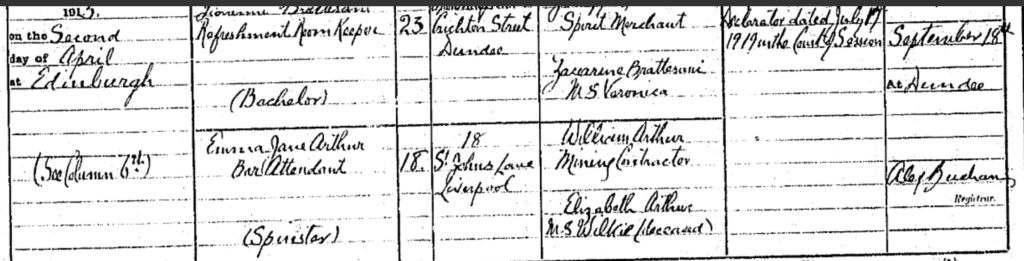 1913.
on the Second
day of April
at Edinburgh
(See Column 6th.)
Giovanni Brattesani
Refreshment Room Keeper
(Bachelor)
Emma Jane Arthur
Bar Attendant
(Spinster)
23
18.
Crichton Street
Dundee
18
St Johns Lane
Liverpool
Spirit Merchant
Zaccarine Brattesani
M.S. Veronica
William Arthur
Mining Contractor
Elizabeth Arthur
M.S. Wilkie (deceased)
Declarator dated July 17
1919 in the Court of Session
September 18th
At Dundee
Alex Buchan
Registrar.